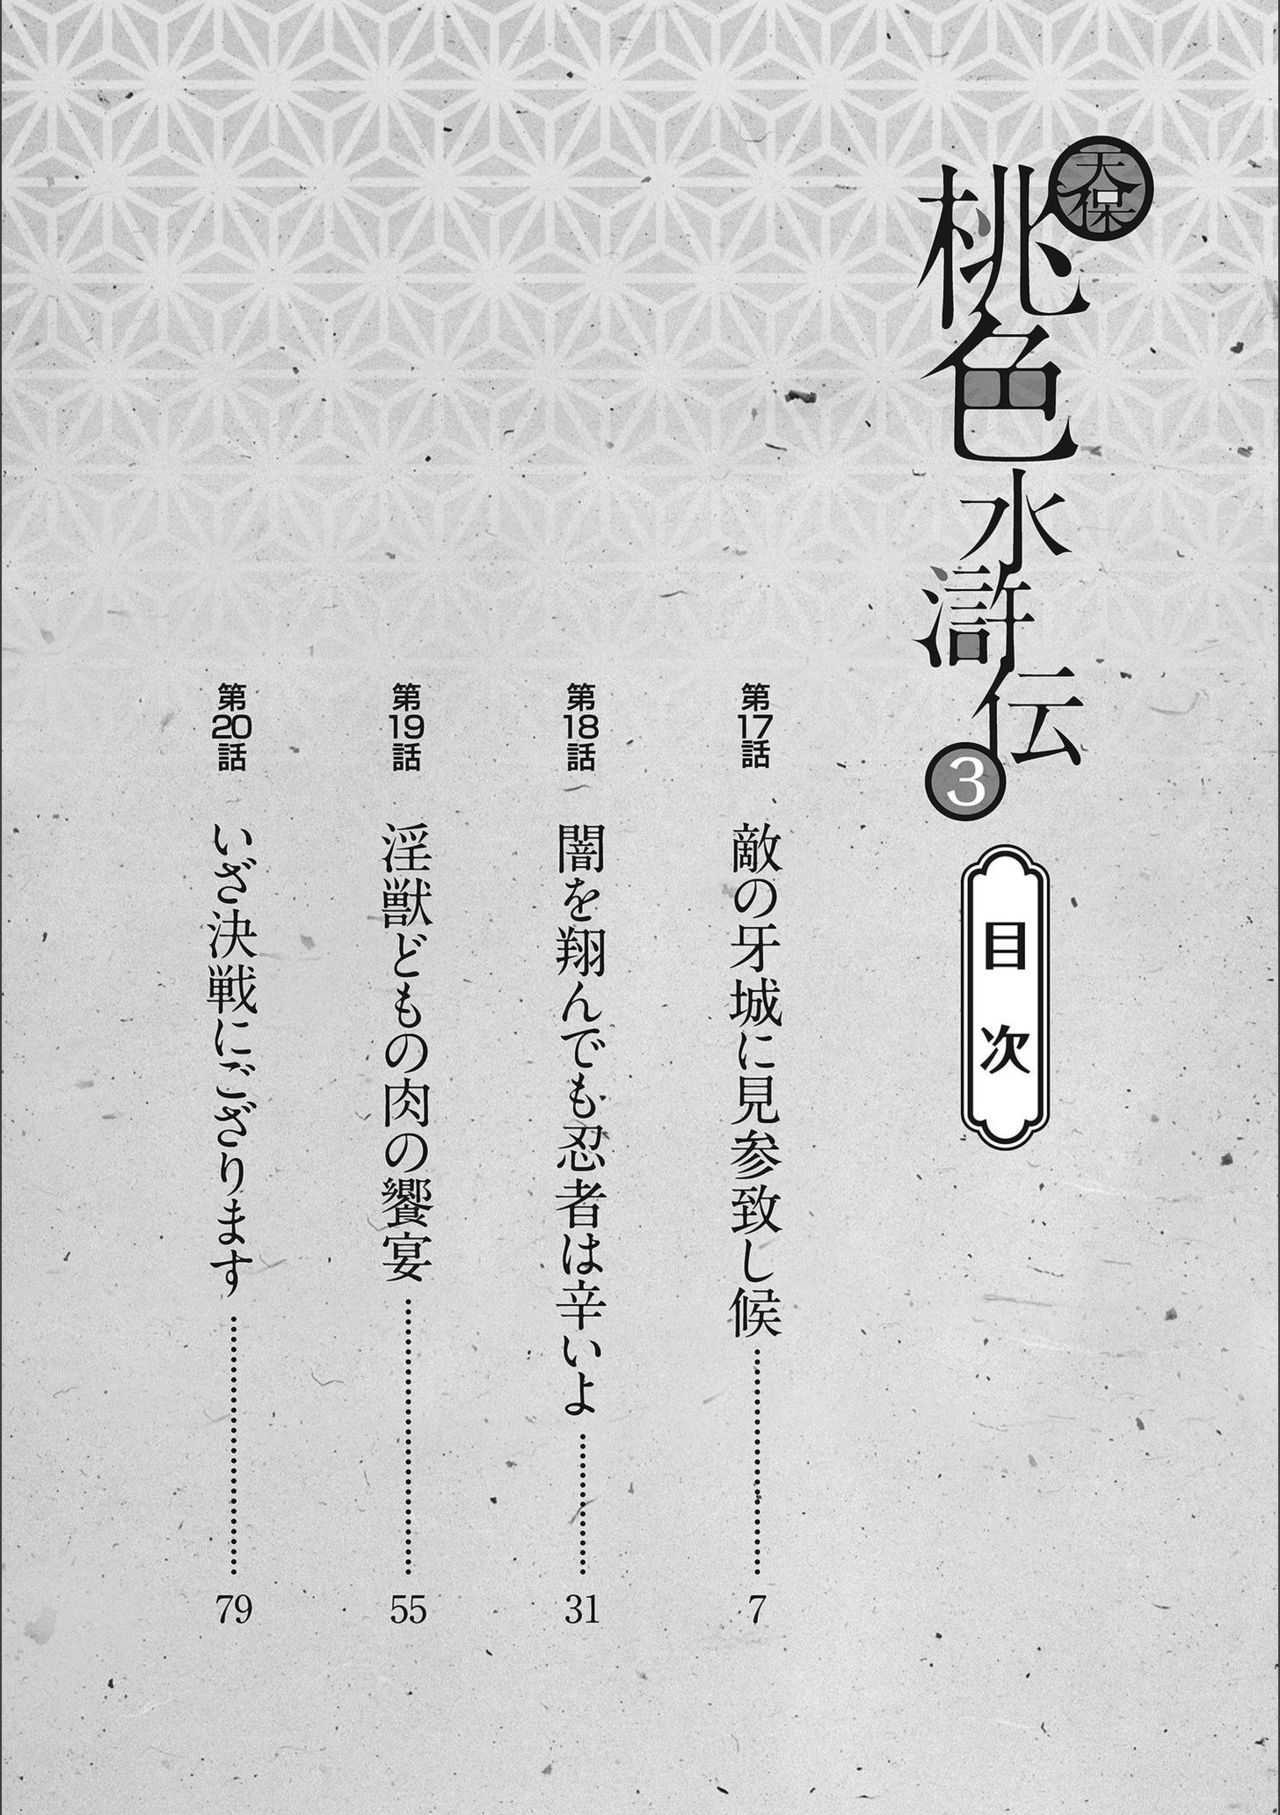 天保
桃色水滸伝
3
目次
第17話 敵の牙城に見参致し候 7
第18話 闇を翔んでも忍者は辛いよ 31
第19話 淫獣どもの肉の饗宴 55
第20話 いざ決戦にござります 79